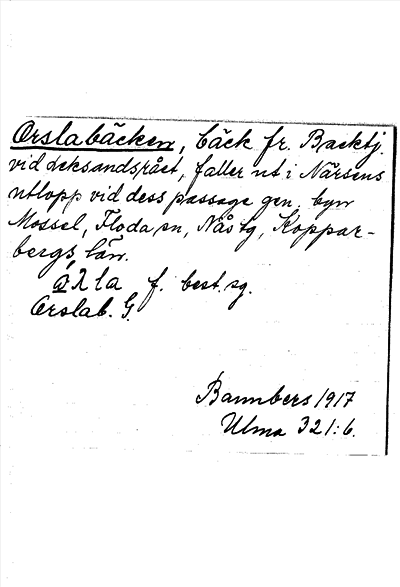 Orslabäcken, bäck fr. Backtj.
vid Leksandsrået, faller ut i Närsens
utlopp vid dess passage gen. byn
Mossel, Floda sn, Nås tg, Koppar-
bergs län.
f. best. sg.
Orslab. G.
Bannbers 1917
Ulma 321:6.